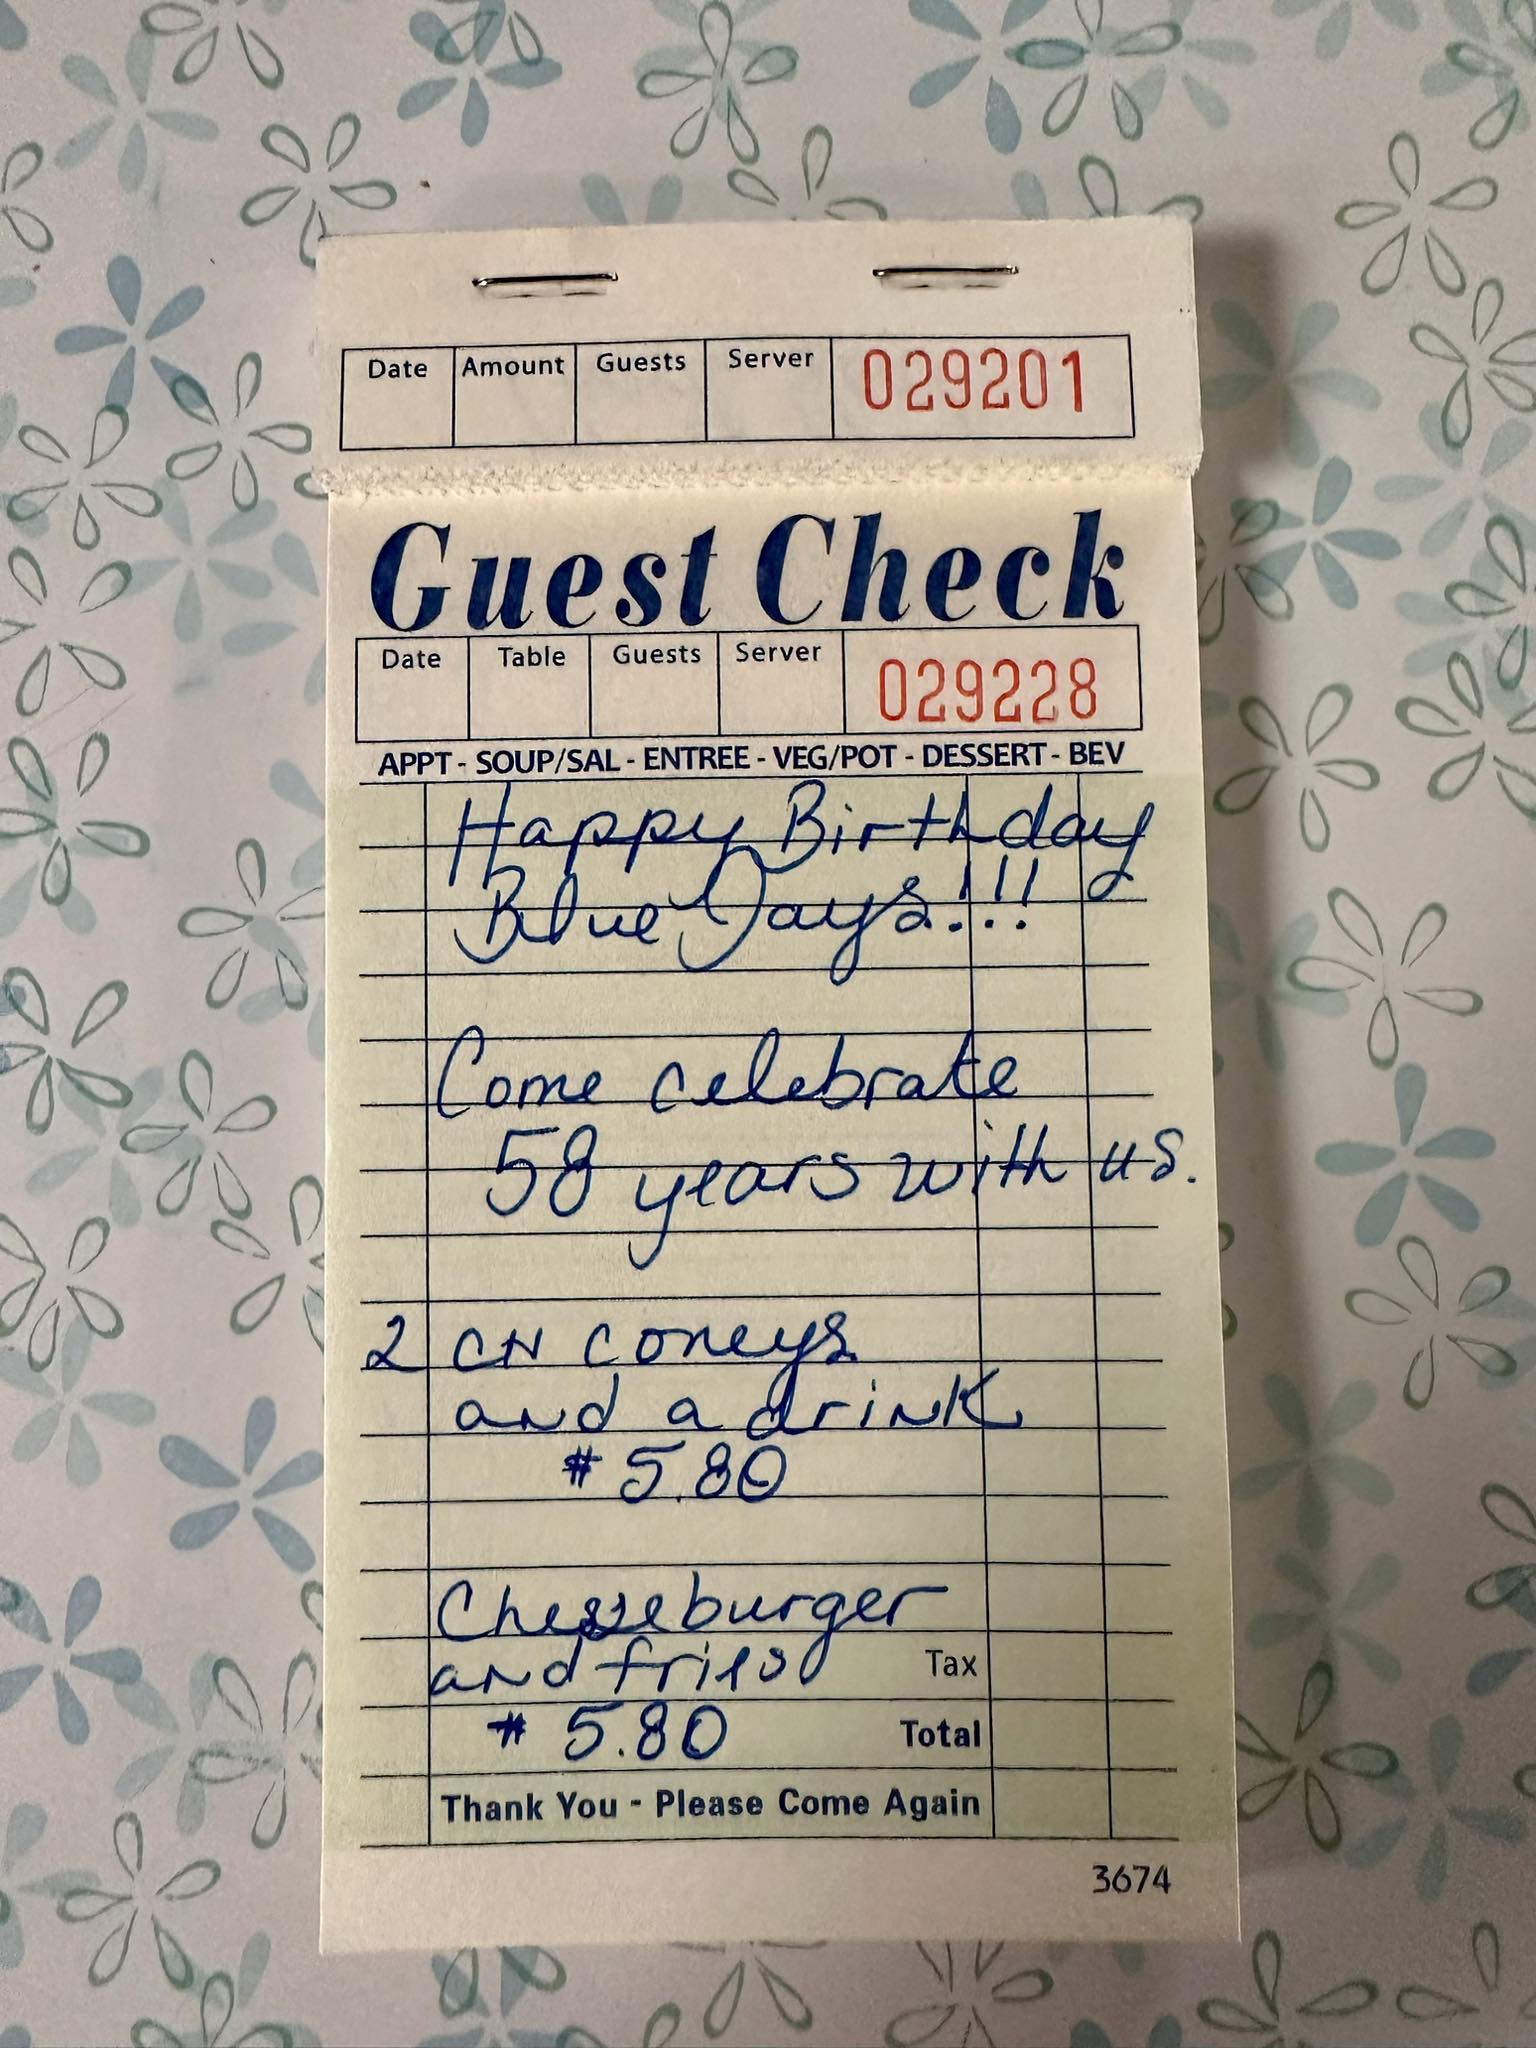 Date Amount Guests Server 029201
Guest Check
Date Table Guests Server 029228
APPT - SOUP/SAL - ENTREE - VEG/POT - DESSERT - BEV
Happy Birthday
Blue Jays!!!
Come celebrate
58 years with us.
2 CH coneys
and a drink
$5.80
Cheeseburger
and fries Tax
$5.80 Total
Thank You - Please Come Again
3674